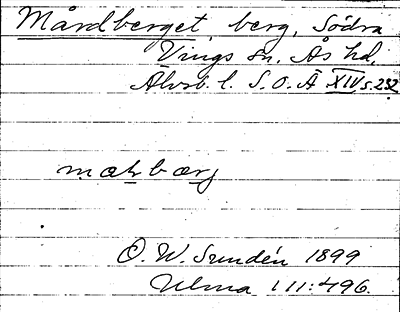 Mårdberget, berg, Södra
Vings sn. Ås hd.
Älvsb. l. S. O. Ä XIV s. 252
O. W. Sundén 1899
Ulma 111:496.